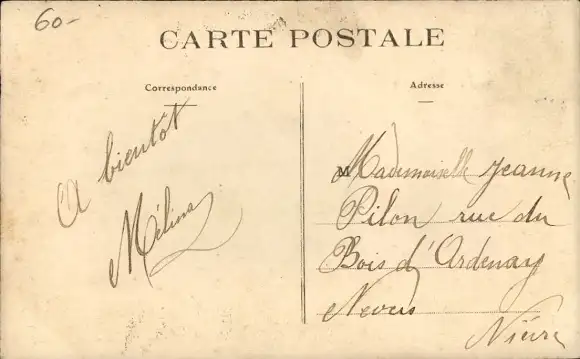 60-
CARTE POSTALE
Correspondance
A bientôt
Mélina
Adresse
Mademoiselle Jeanne
Pilon rue du
Bois d'Ardenay
Nevers
Nièvre